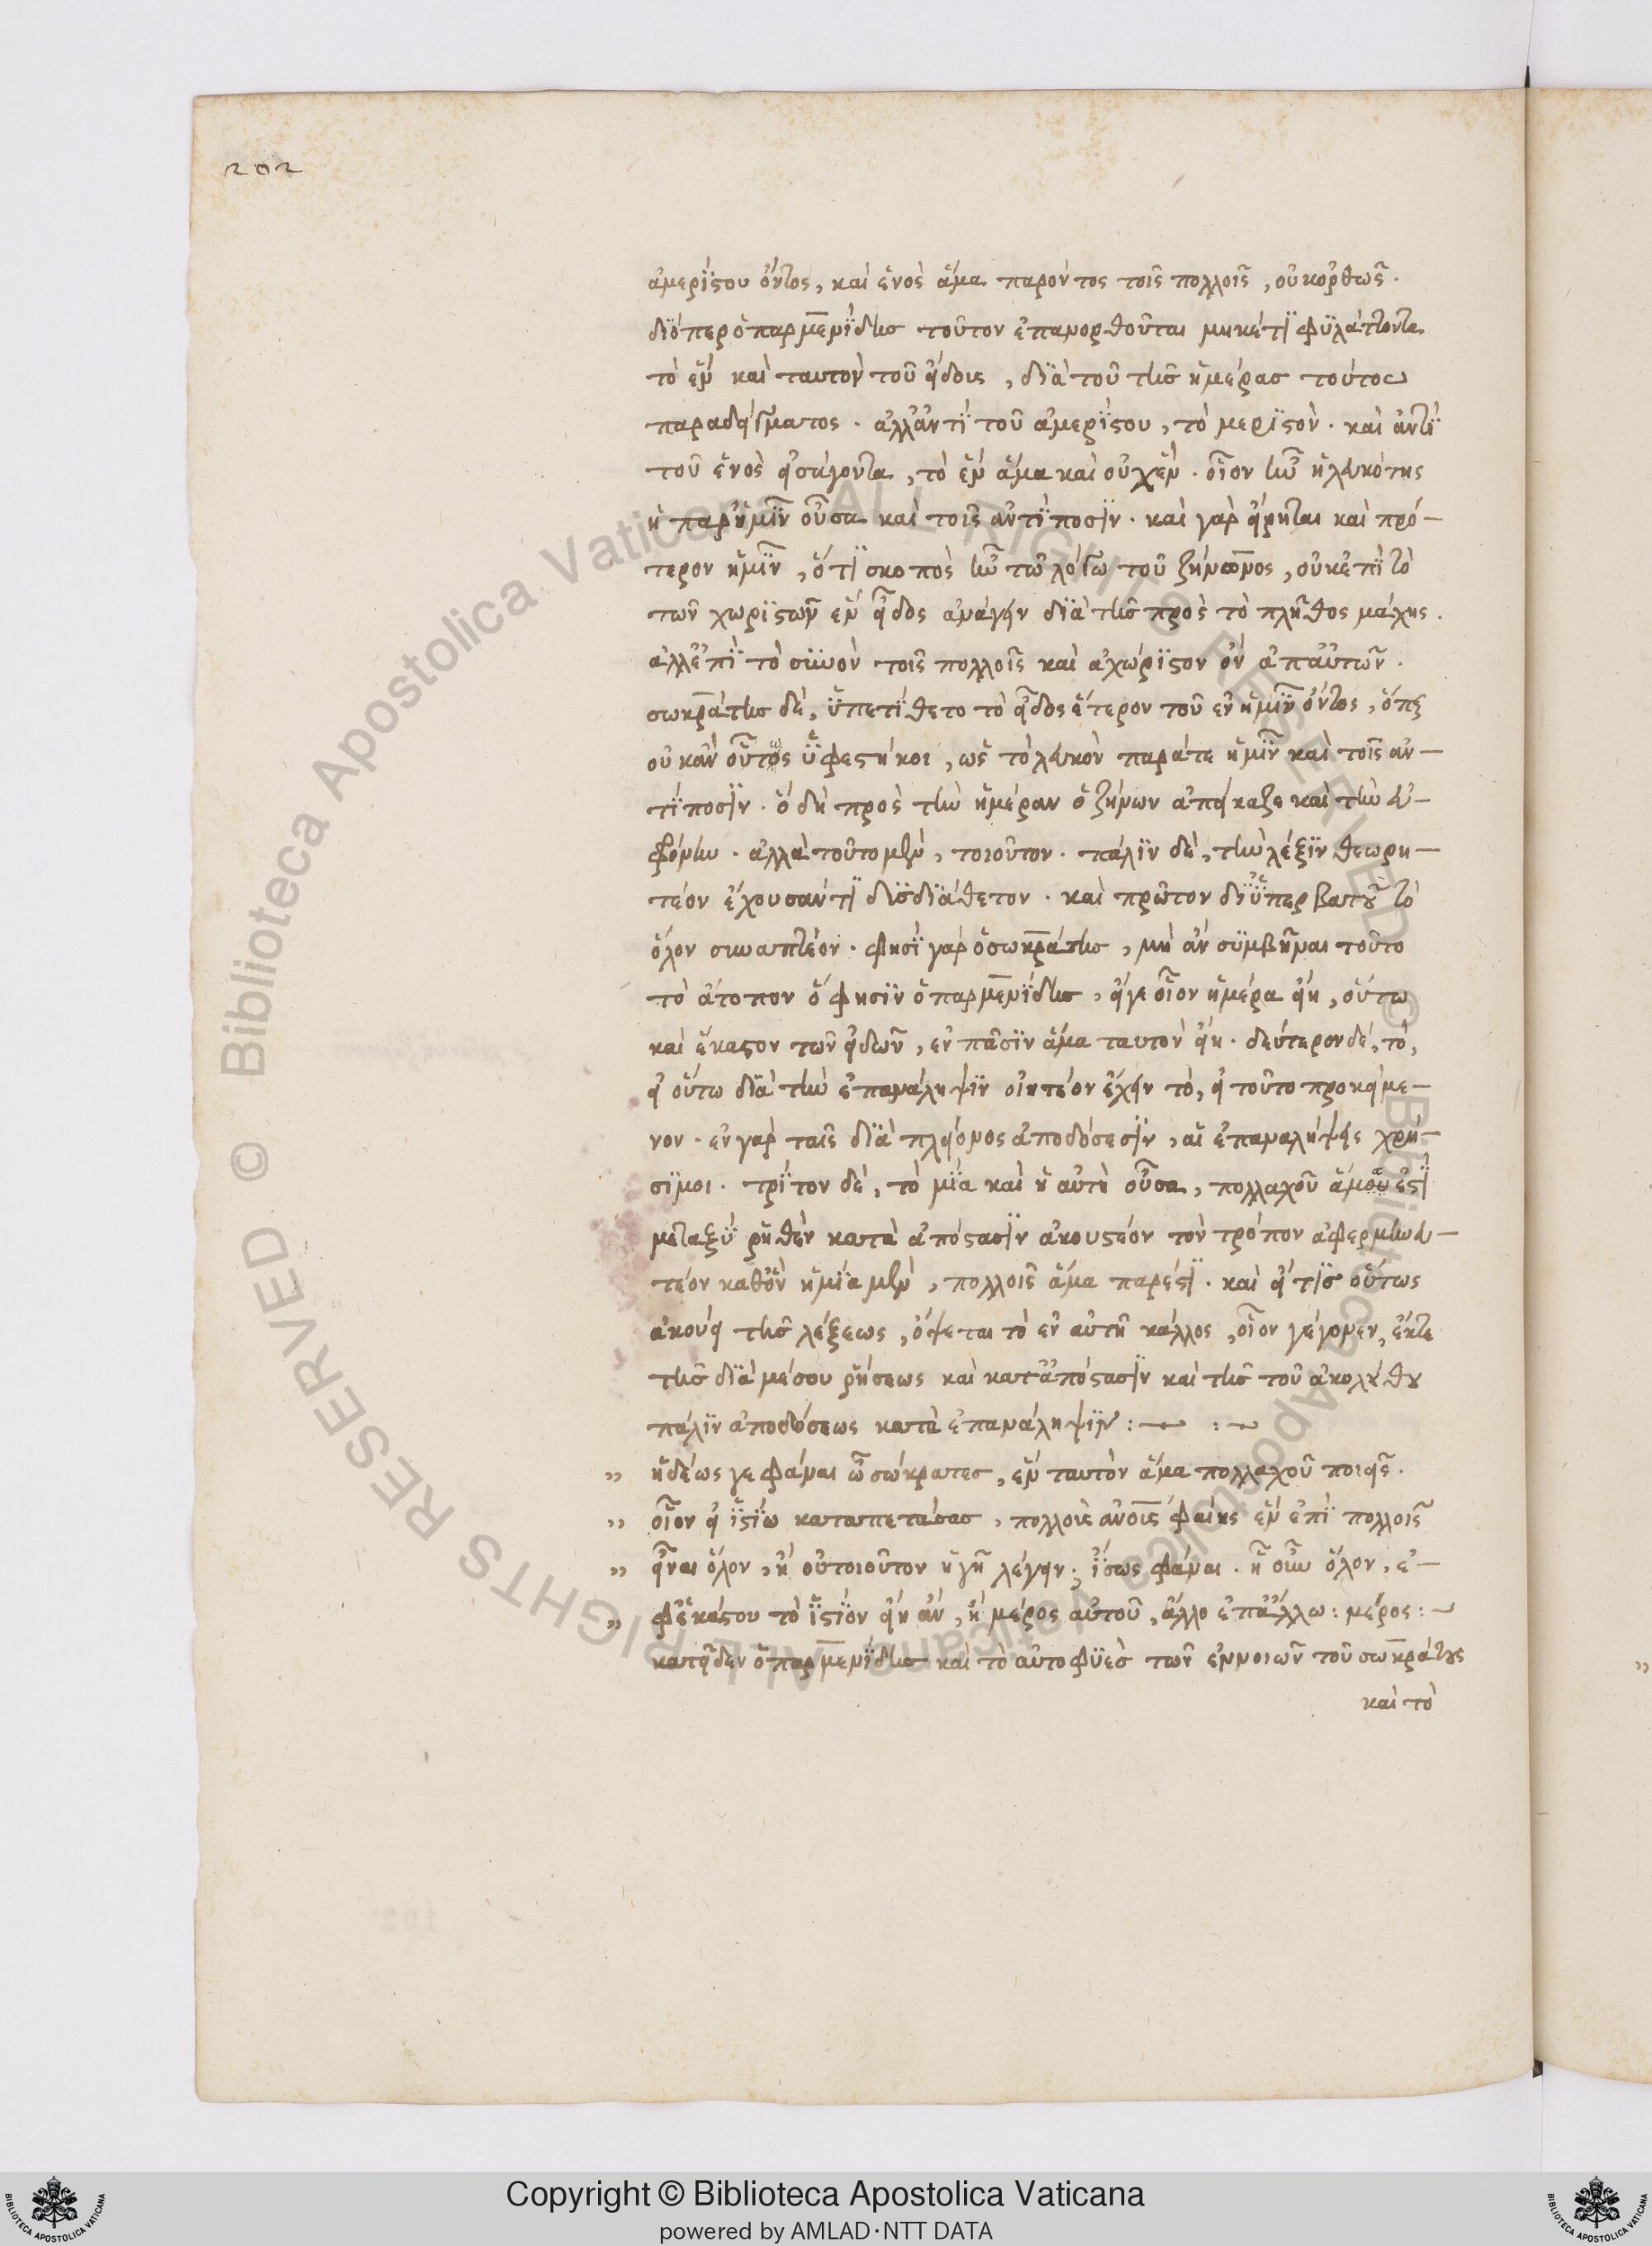 202
ἀμερίστου ὄντος, καὶ ἑνὸς ἅμα παρόντος τοῖς πολλοῖς, οὐκ ὀρθῶς.
διόπερ ὁ παρμενίδης τοῦτον ἐπανορθοῦται μηκέτι φυλάττοντα
τὸ ἓν καὶ ταυτὸν τοῦ εἴδους, διὰ τοῦ τῆς ἡμέρας τούτου
παραδείγματος. ἀλλ' ἀντὶ τοῦ ἀμερίστου, τὸ μεριστὸν. καὶ ἀντὶ
τοῦ ἑνὸς εἰσάγοντα, τὸ ἓν ἅμα καὶ οὐχ ἓν. οἷον ἦν ἡ λευκότης
ἡ παρ' ἡμῖν οὖσα καὶ τοῖς ἀντίποσιν. καὶ γὰρ εἴρηται καὶ πρό-
τερον ἡμῖν, ὅτι σκοπὸς ἦν τῷ λόγῳ τοῦ ζήνωνος, οὐκ ἐπὶ τὸ
τῶν χωριστῶν ἓν εἶδος ἀνάγειν διὰ τῆς πρὸς τὸ πλῆθος μάχης.
ἀλλ' ἐπὶ τὸ συνὸν τοῖς πολλοῖς καὶ ἀχώριστον ὂν ἀπ' αὐτῶν.
σωκράτης δὲ, ὑπετίθετο τὸ εἶδος ἕτερον τοῦ ἐν ἡμῖν ὄντος, ὅπερ
οὐκ ἂν οὕτως ὑφεστήκοι, ὡς τὸ λευκὸν παρά τε ἡμῖν καὶ τοῖς ἀν-
τίποσιν. ὃ δὴ πρὸς τὴν ἡμέραν ὁ ζήνων ἀπείκαζε καὶ τὴν εὐ-
φρόνην. ἀλλὰ τοῦτο μὲν, τοιοῦτον. πάλιν δὲ, τὴν λέξιν θεωρη-
τέον ἔχουσάν τι δυσδιάθετον. καὶ πρῶτον δι' ὑπερβατοῦ τὸ
ὅλον συναπτέον. φησὶ γὰρ ὁ σωκράτης, μὴ ἂν συμβῆναι τοῦτο
τὸ ἄτοπον ὅ φησιν ὁ παρμενίδης, εἴγε οἷον ἡμέρα εἴη, οὕτω
καὶ ἕκαστον τῶν εἰδῶν, ἐν πᾶσιν ἅμα ταυτὸν εἴη. δεύτερον δὲ, τὸ,
εἰ οὕτω διὰ τὴν ἐπανάληψιν οἰητέον ἔχειν τὸ, εἰ τοῦτο προκείμε-
νον. ἐν γὰρ ταῖς διὰ πλείονος ἀποδόσεσιν, αἱ ἐπαναλήψεις χρή-
σιμοι. τρίτον δὲ, τὸ μία καὶ ἡ αὐτὴ οὖσα, πολλαχοῦ ἅμα ἐστὶ
μεταξὺ ῥηθὲν κατὰ ἀπόστασιν ἀκουστέον τὸν τρόπον ἀφερμηνευ-
τέον καθ' ὃν ἡ μία μὲν, πολλοῖς ἅμα πάρεστι. καὶ εἴ τις οὕτως
ἀκούει τῆς λέξεως, ὄψεται τὸ ἐν αὐτῇ κάλλος, οἷον γέγονεν, ἔκ τε
τῆς διὰ μέσου ῥήσεως καὶ κατ' ἀπόστασιν καὶ τῆς τοῦ ἀκολούθου
πάλιν ἀποδόσεως κατὰ ἐπανάληψιν:— :~
„ ἡδέως γε φάναι ὦ σώκρατες, ἓν ταυτὸν ἅμα πολλαχοῦ ποιεῖς.
„ οἷον εἰ ἱστίῳ καταπετάσας, πολλοὺς ἀνους φαίης ἓν ἐπὶ πολλοῖς
„ εἶναι ὅλον, ἢ οὐ τοιοῦτον ἡγῇ λέγειν; ἴσως φάναι. ἦ οὖν ὅλον, ἐ-
„ φ' ἑκάστου τὸ ἱστίον εἴη ἂν, ἢ μέρος αὐτοῦ, ἄλλο ἐπ' ἄλλω: μέρος:~
κατεῖδεν ὁ παρμενίδης καὶ τὸ αὐτοφυὲς τῶν ἐννοιῶν τοῦ σωκράτους
καὶ τὸ